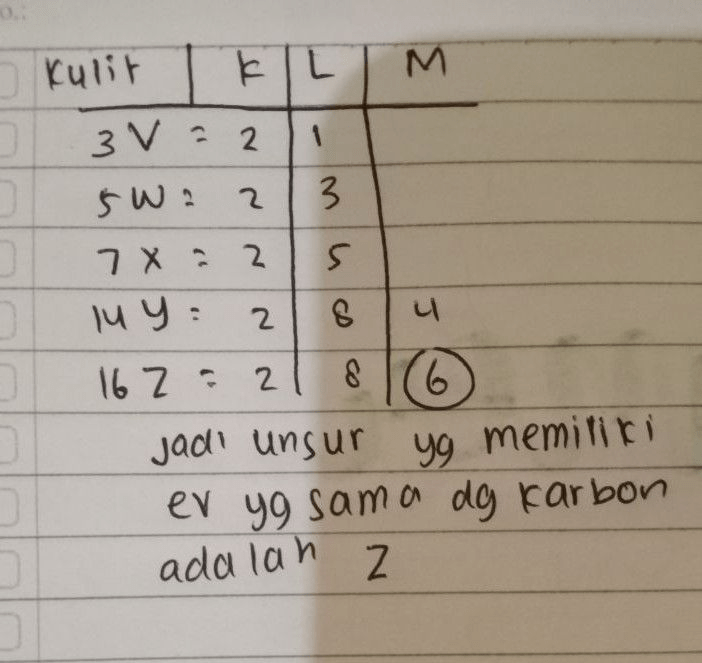 Kulit K L M
3 V = 2 1
5 W = 2 3
7 X = 2 5
14 Y = 2 8 4
16 Z = 2 8 6
Jadi unsur yg memiliki
ev yg sama dg karbon
adalah Z